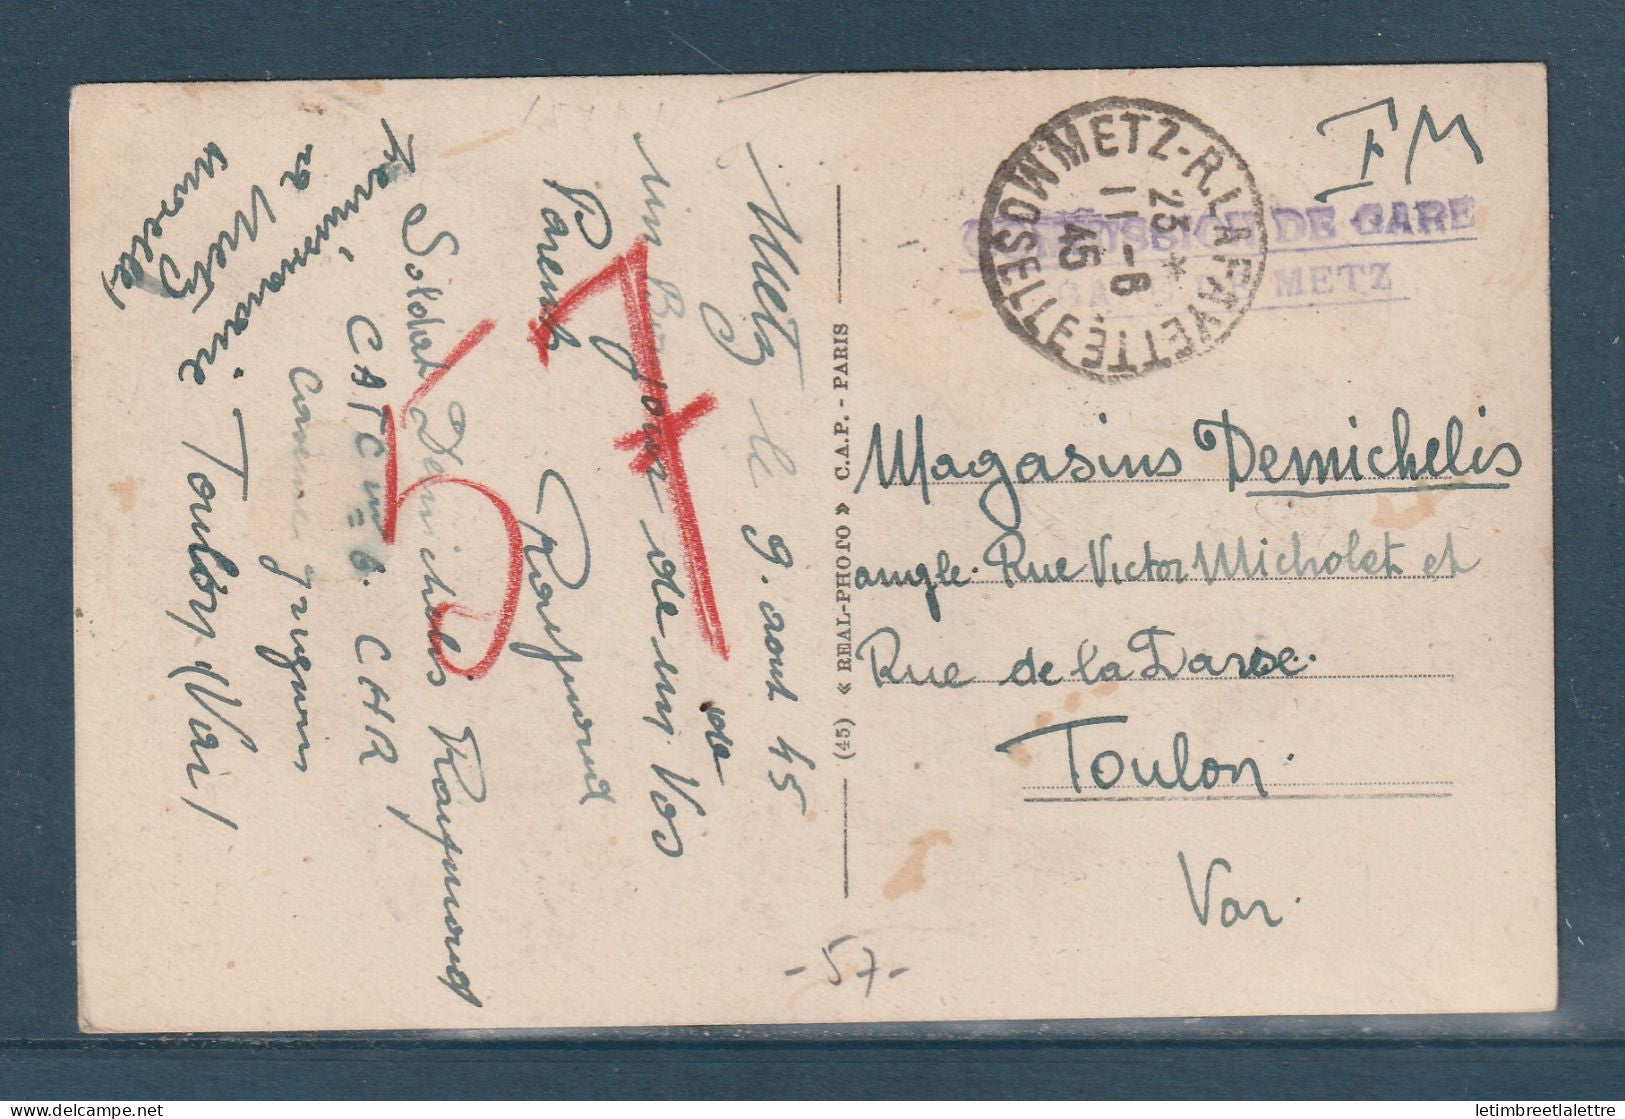 FM
METZ-R.LAFAYETTE
MOSELLE
23 *
11-6
45
COMMISSION DE GARE
GARE DE METZ
Magasins Demichelis
angle. Rue Victor Micholet et
Rue de la Darse.
Toulon.
Var.
(45) « REAL-PHOTO » C.A.P. - PARIS
Metz le 9. aout 45
un Bonjour de un de Vos
Parents Raymond
Soldat Demichelis Raymond
CATC 6. CHR
Caserne grignons
Toulon (Var)
a Metz
57
-57-
letimbreetlalettre
www.delcampe.net